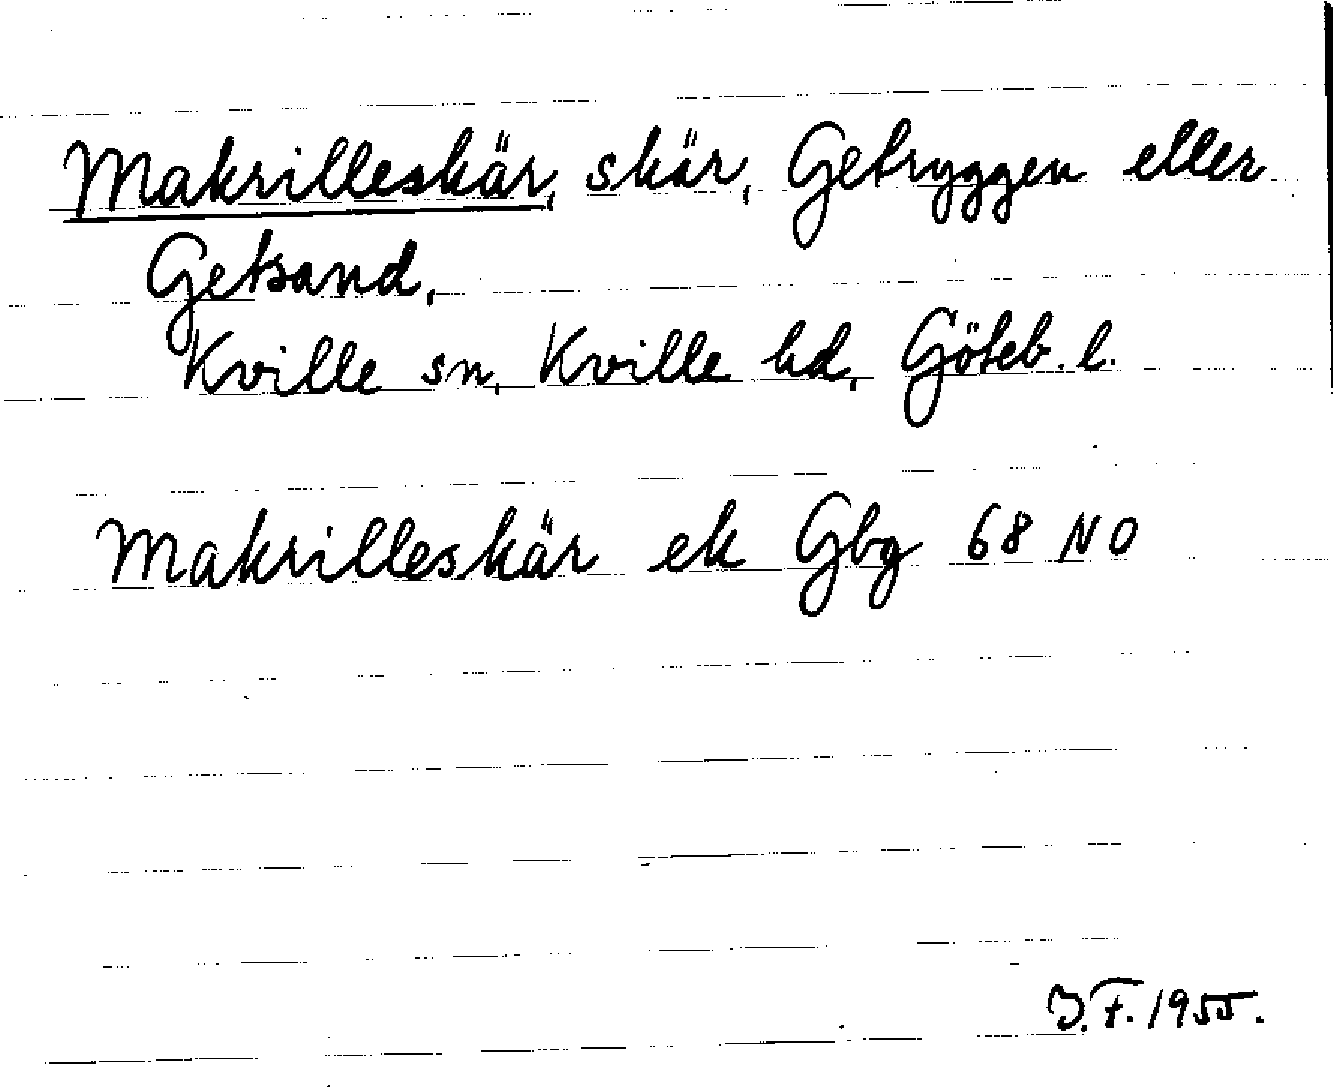 Makrilleskär, skär, Getryggen eller
Getsand,
Kville sn, Kville hd, Göteb. l.
Makrilleskär ek Gbg 68 NO
I.F. 1955.